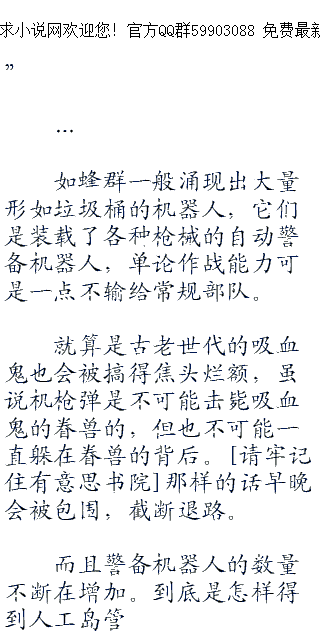 求小说网欢迎您！官方QQ群59903088 免费最新
”
…
如蜂群一般涌现出大量
形如垃圾桶的机器人，它们
是装载了各种枪械的自动警
备机器人，单论作战能力可
是一点不输给常规部队。
就算是古老世代的吸血
鬼也会被搞得焦头烂额，虽
说机枪弹是不可能击毙吸血
鬼的眷兽的，但也不可能一
直躲在眷兽的背后。[请牢记
住有意思书院]那样的话早晚
会被包围，截断退路。
而且警备机器人的数量
不断在增加。到底是怎样得
到人工岛管